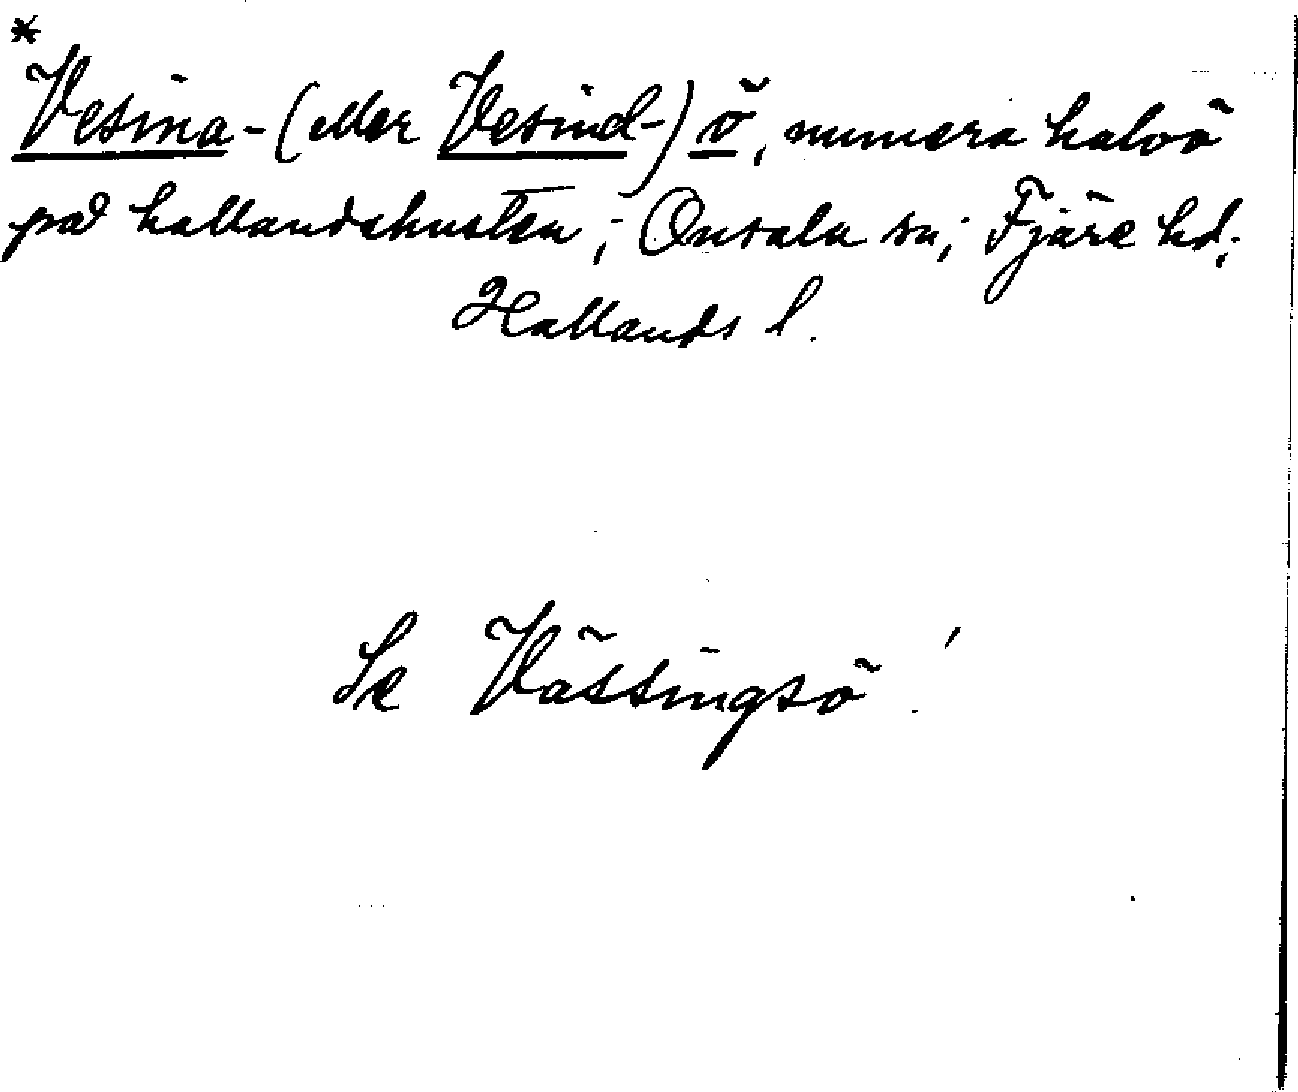 *
Vesina- (eller Vesind-) ö, numera halvö
på hallandskusten; Onsala sn; Fjäre hd;
Hallands l.
Se Vässingsö!